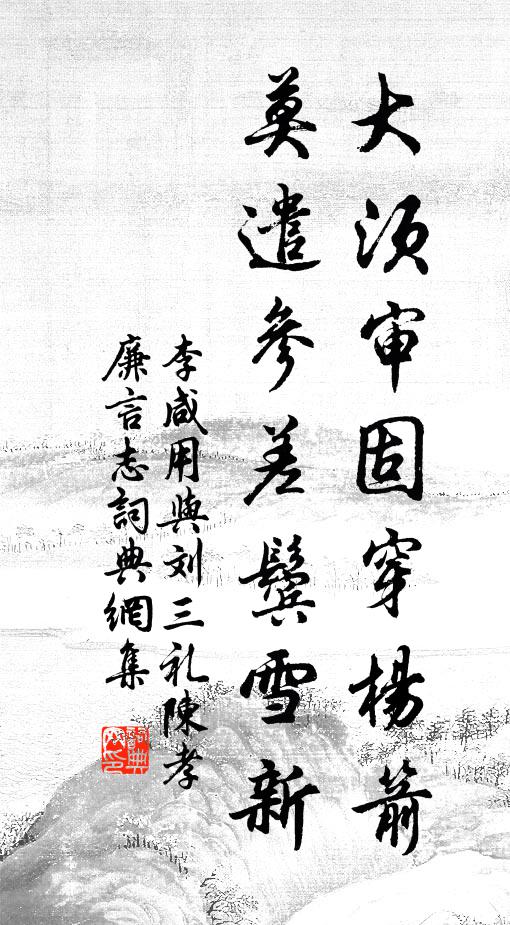 大须审固穿杨箭
莫遣參差鬓雪新
李咸用與刘三礼陳孝
廉言志詞典網集